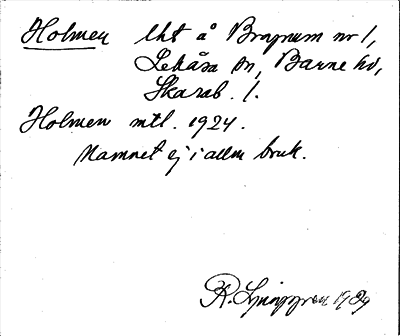 Holmen lht å Brynum nr 1,
Lekåsa sn, Barne hd,
Skarab. l.
Holmen mtl. 1924.
Namnet ej i allm bruk.
R. Ljunggren 1929